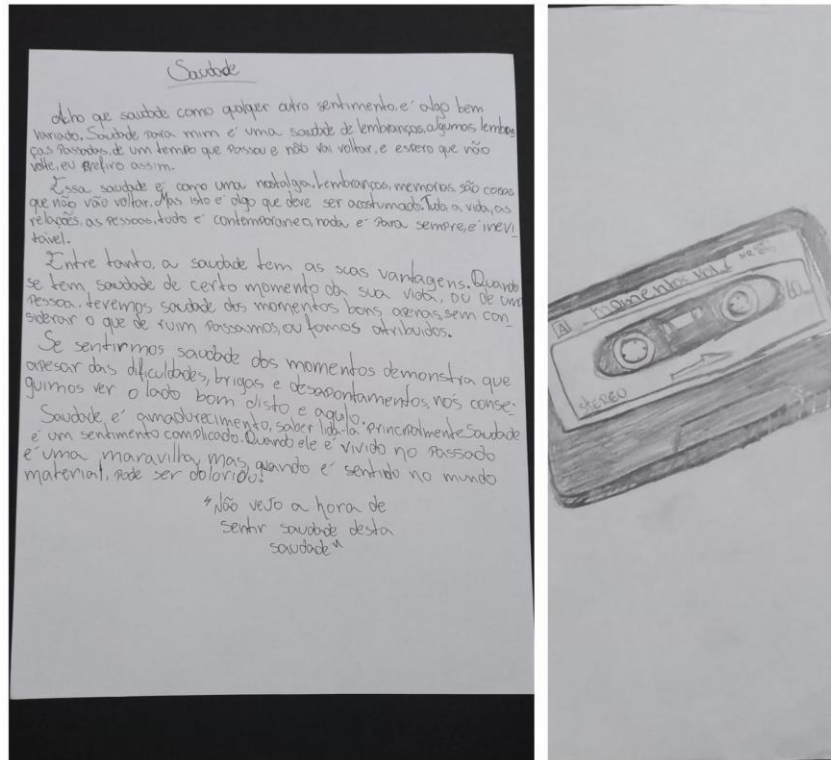 Saudade
Acho que saudade como qualquer outro sentimento, e' algo bem
variado. Saudade para mim e' uma saudade de lembranças, algumas lembran
ças passadas, de um tempo que passou e não vai voltar, e espero que não
volte, eu prefiro assim.
Essa saudade e' como uma nostalgia. Lembranças, memorias, são coisas
que não vão voltar. Mas isto e' algo que deve ser acostumado. Toda a vida, as
relações, as pessoas, tudo e' contemporaneo, nada e' para sempre, e' inevi-
tavel.
Entre tanto, a saudade tem as suas vantagens. Quando
se tem, saudade de certo momento da sua vida, ou de uma
pessoa, teremos saudade dos momentos bons apenas, sem con_
siderar o que de ruim passamos, ou fomos atribuidos.
Se sentirmos saudade dos momentos demonstra que
apesar das dificuldades, brigas e desapontamentos, nos conse-
guimos ver o lado bom disto e aquilo.
Saudade e' amadurecimento, saber lida-la principalmente. Saudade
e' um sentimento complicado. Quando ele e' vivido no passado
e' uma maravilha, mas, quando e' sentido no mundo
material, pode ser dolorido!
"Não vejo a hora de
sentir saudade desta
saudade"
[A] momentos vol. 1
60
STEREO